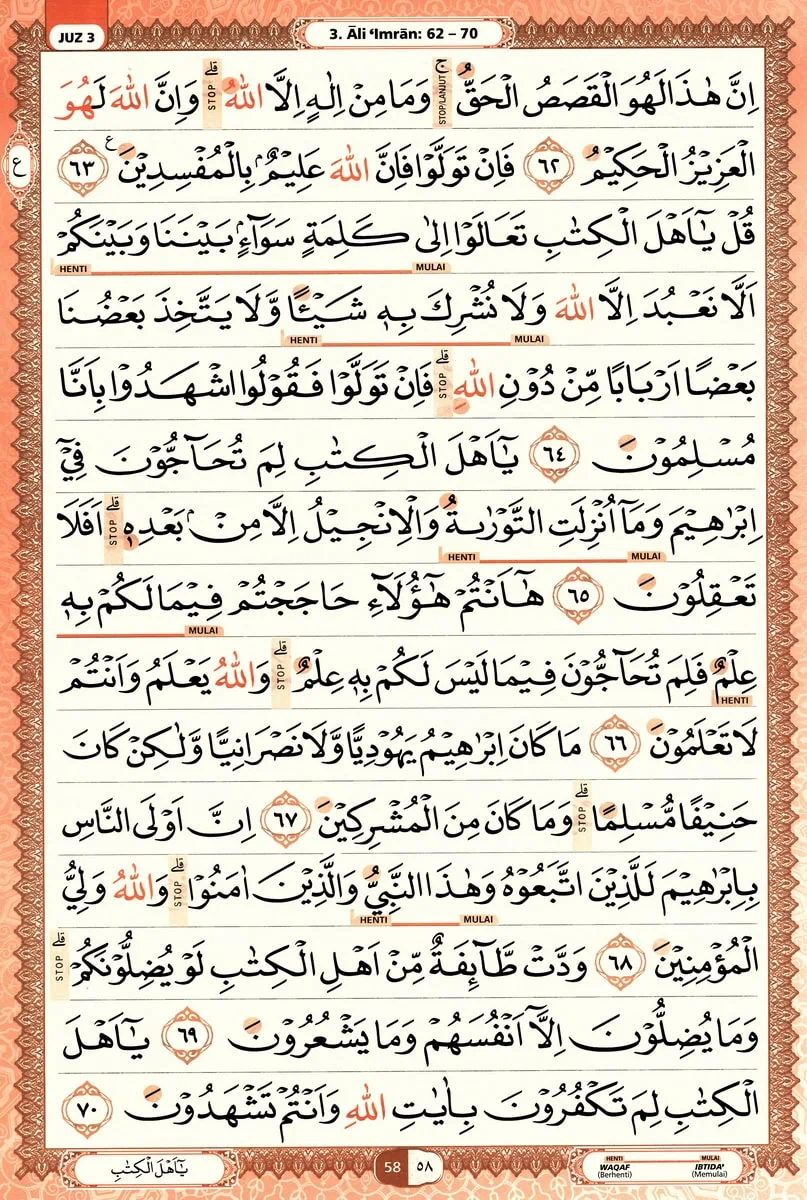 JUZ 3
3. Āli ‘Imrān: 62 – 70
اِنَّ هٰذَا لَهُوَ الْقَصَصُ الْحَقُّ ۚ STOP/LANJUT وَمَا مِنْ اِلٰهٍ اِلَّا اللّٰهُ ۗ STOP وَاِنَّ اللّٰهَ لَهُوَ
ع
الْعَزِيْزُ الْحَكِيْمُ ٦٢ فَاِنْ تَوَلَّوْا فَاِنَّ اللّٰهَ عَلِيْمٌۢ بِالْمُفْسِدِيْنَ ࣖ ٦٣
قُلْ يٰٓاَهْلَ الْكِتٰبِ تَعَالَوْا اِلٰى كَلِمَةٍ سَوَاۤءٍۢ بَيْنَنَا وَبَيْنَكُمْ
MULAI HENTI
اَلَّا نَعْبُدَ اِلَّا اللّٰهَ وَلَا نُشْرِكَ بِهٖ شَيْـًٔا وَّلَا يَتَّخِذَ بَعْضُنَا
MULAI HENTI
بَعْضًا اَرْبَابًا مِّنْ دُوْنِ اللّٰهِ ۗ STOP فَاِنْ تَوَلَّوْا فَقُوْلُوا اشْهَدُوْا بِاَنَّا
مُسْلِمُوْنَ ٦٤ يٰٓاَهْلَ الْكِتٰبِ لِمَ تُحَاۤجُّوْنَ فِيْٓ
اِبْرٰهِيْمَ وَمَآ اُنْزِلَتِ التَّوْرٰىةُ وَالْاِنْجِيْلُ اِلَّا مِنْۢ بَعْدِهٖ ۗ STOP اَفَلَا
MULAI HENTI
تَعْقِلُوْنَ ٦٥ هٰٓاَنْتُمْ هٰٓؤُلَاۤءِ حَاجَجْتُمْ فِيْمَا لَكُمْ بِهٖ
MULAI
عِلْمٌ فَلِمَ تُحَاۤجُّوْنَ فِيْمَا لَيْسَ لَكُمْ بِهٖ عِلْمٌ ۗ STOP وَاللّٰهُ يَعْلَمُ وَاَنْتُمْ
HENTI
لَا تَعْلَمُوْنَ ٦٦ مَا كَانَ اِبْرٰهِيْمُ يَهُوْدِيًّا وَّلَا نَصْرَانِيًّا وَّلٰكِنْ كَانَ
حَنِيْفًا مُّسْلِمًا ۗ STOP وَمَا كَانَ مِنَ الْمُشْرِكِيْنَ ٦٧ اِنَّ اَوْلَى النَّاسِ
بِاِبْرٰهِيْمَ لَلَّذِيْنَ اتَّبَعُوْهُ وَهٰذَا النَّبِيُّ وَالَّذِيْنَ اٰمَنُوْا ۗ STOP وَاللّٰهُ وَلِيُّ
MULAI HENTI
الْمُؤْمِنِيْنَ ٦٨ وَدَّتْ طَّاۤىِٕفَةٌ مِّنْ اَهْلِ الْكِتٰبِ لَوْ يُضِلُّوْنَكُمْ ۗ STOP
وَمَا يُضِلُّوْنَ اِلَّآ اَنْفُسَهُمْ وَمَا يَشْعُرُوْنَ ٦٩ يٰٓاَهْلَ
الْكِتٰبِ لِمَ تَكْفُرُوْنَ بِاٰيٰتِ اللّٰهِ وَاَنْتُمْ تَشْهَدُوْنَ ٧٠
يٰٓاَهْلَ الْكِتٰبِ
58 ٥٨
HENTI MULAI
WAQAF IBTIDA'
(Berhenti) (Memulai)